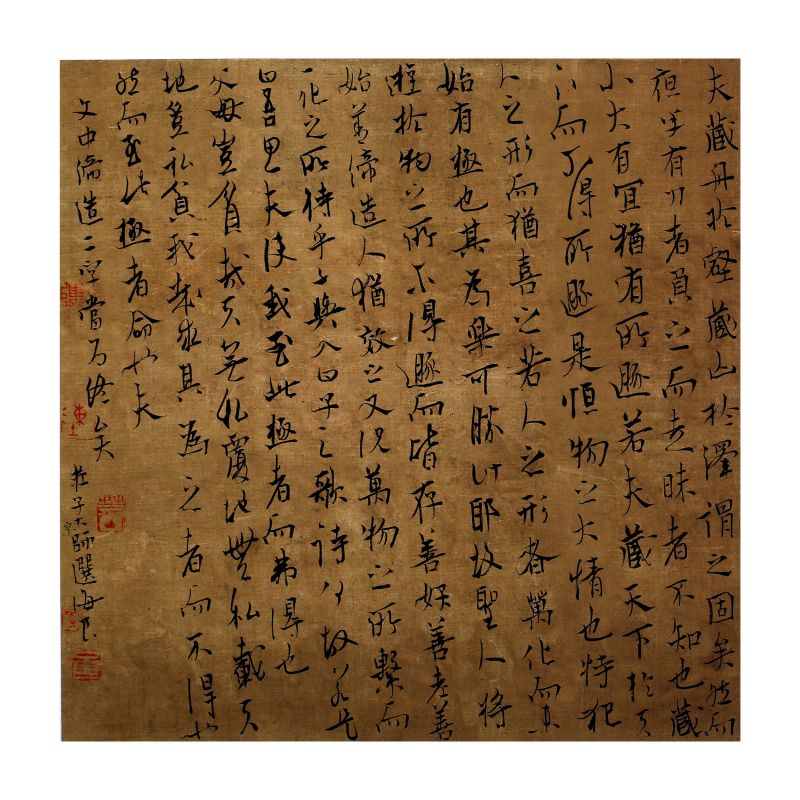 夫藏舟於壑藏山於澤謂之固矣然而
夜半有力者負之而走昧者不知也藏
小大有宜猶有所遯若夫藏天下於天
下而不得所遯是恒物之大情也特犯
人之形而猶喜之若人之形者萬化而未
始有極也其為樂可勝計耶故聖人將
遊於物之所不得遯而皆存善妖善老善
始善締造人猶效之又況萬物之所繫而
一化之所待乎子輿入曰子之歌詩何故若是
曰吾思夫使我至此極者而弗得也
父母豈貧哉天無私覆地無私載天
地豈私貧我哉求其為之者而不得也
然而至此極者命也夫
文中締造二字當為終矣
莊子大師選海